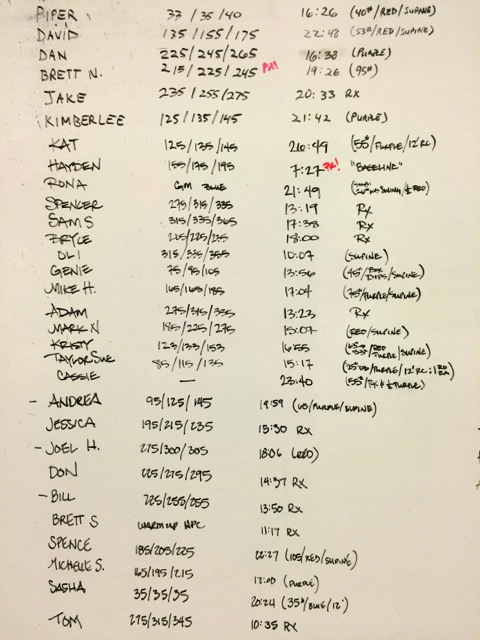 PIPER 33/35/40 16:26 (40#/RED/SUPINE)
DAVID 135/155/175 22:48 (53#/RED/SUPINE)
DAN 225/245/265 16:38 (PURPLE)
BRETT N. 215/225/245 PR! 19:26 (95#)
JAKE 235/255/275 20:33 RX
KIMBERLEE 125/135/145 21:42 (PURPLE)
KAT 125/135/145 20:49 (55#/PURPLE/12'RC)
HAYDEN 155/175/195 7:27 PR! "BASELINE"
RONA GM BLUE 21:49
SPENCER 275/315/335 13:19 Rx
SAM S 315/335/365 17:38 Rx
BRYCE 18:00 Rx
OLI 315/335/355 10:07 (SUPINE)
GENIE 75/95/105 13:56 (45#/BOX DIPS/SUPINE)
MIKE H. 165/165/185 17:04 (75#/PURPLE/SUPINE)
ADAM 275/315/335 13:23 Rx
MARK N 185/225/275 15:07 (RED/SUPINE)
KRISTY 123/133/153 16:55
TAYLOR SUE 85/115/135 15:17
CASSIE — 23:40
- ANDREA 95/125/145 19:59 (65/PURPLE/SUPINE)
JESSICA 195/215/235 15:30 RX
- JOEL H. 275/300/305 18:06 (RED)
DON 225/275/295 14:37 RX
- BILL 225/255/255 13:50 RX
BRETT S WARM UP NPC 11:17 RX
SPENCE 185/205/225 22:27 (105/RED/SUPINE)
MICHELLE S. 165/195/215 17:00 (PURPLE)
SASHA 35/35/35 20:24 (35#/BLUE/12')
TOM 275/315/345 10:35 RX